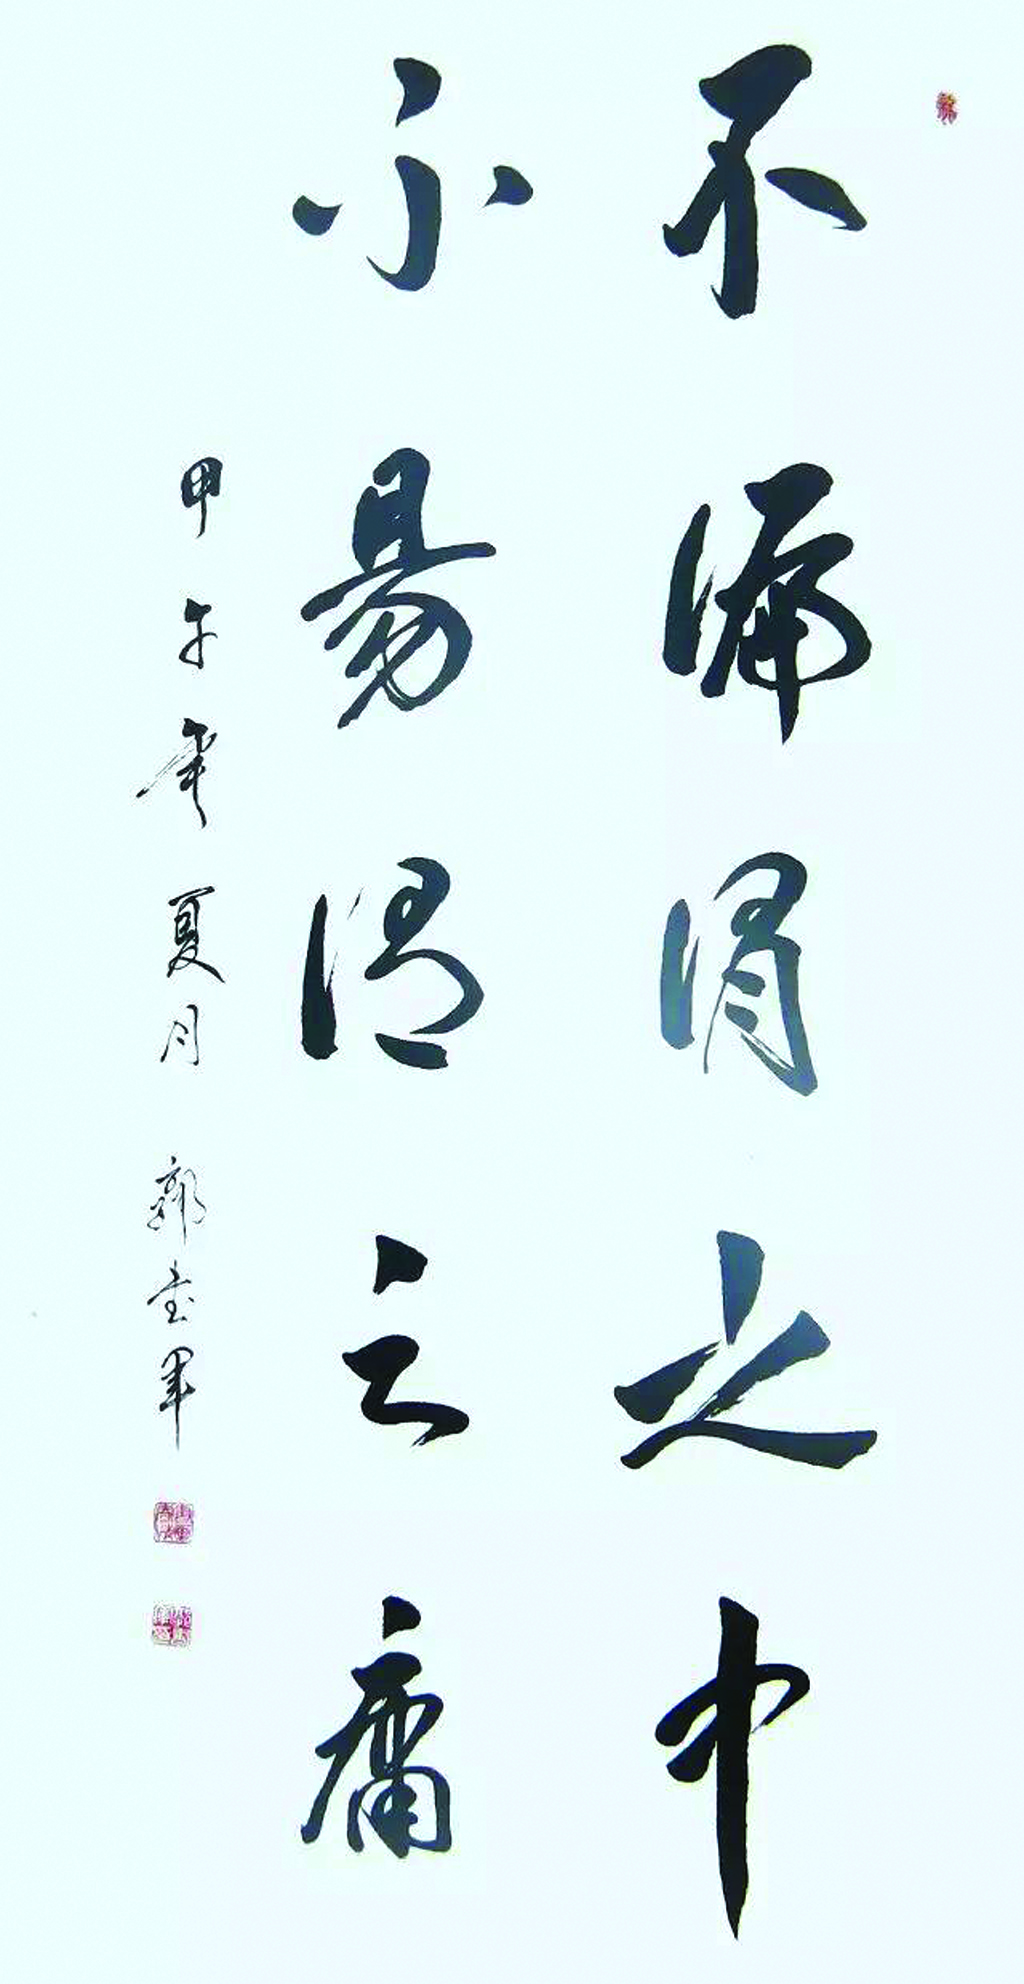 不偏谓之中
不易谓之庸
甲午年夏月 郭